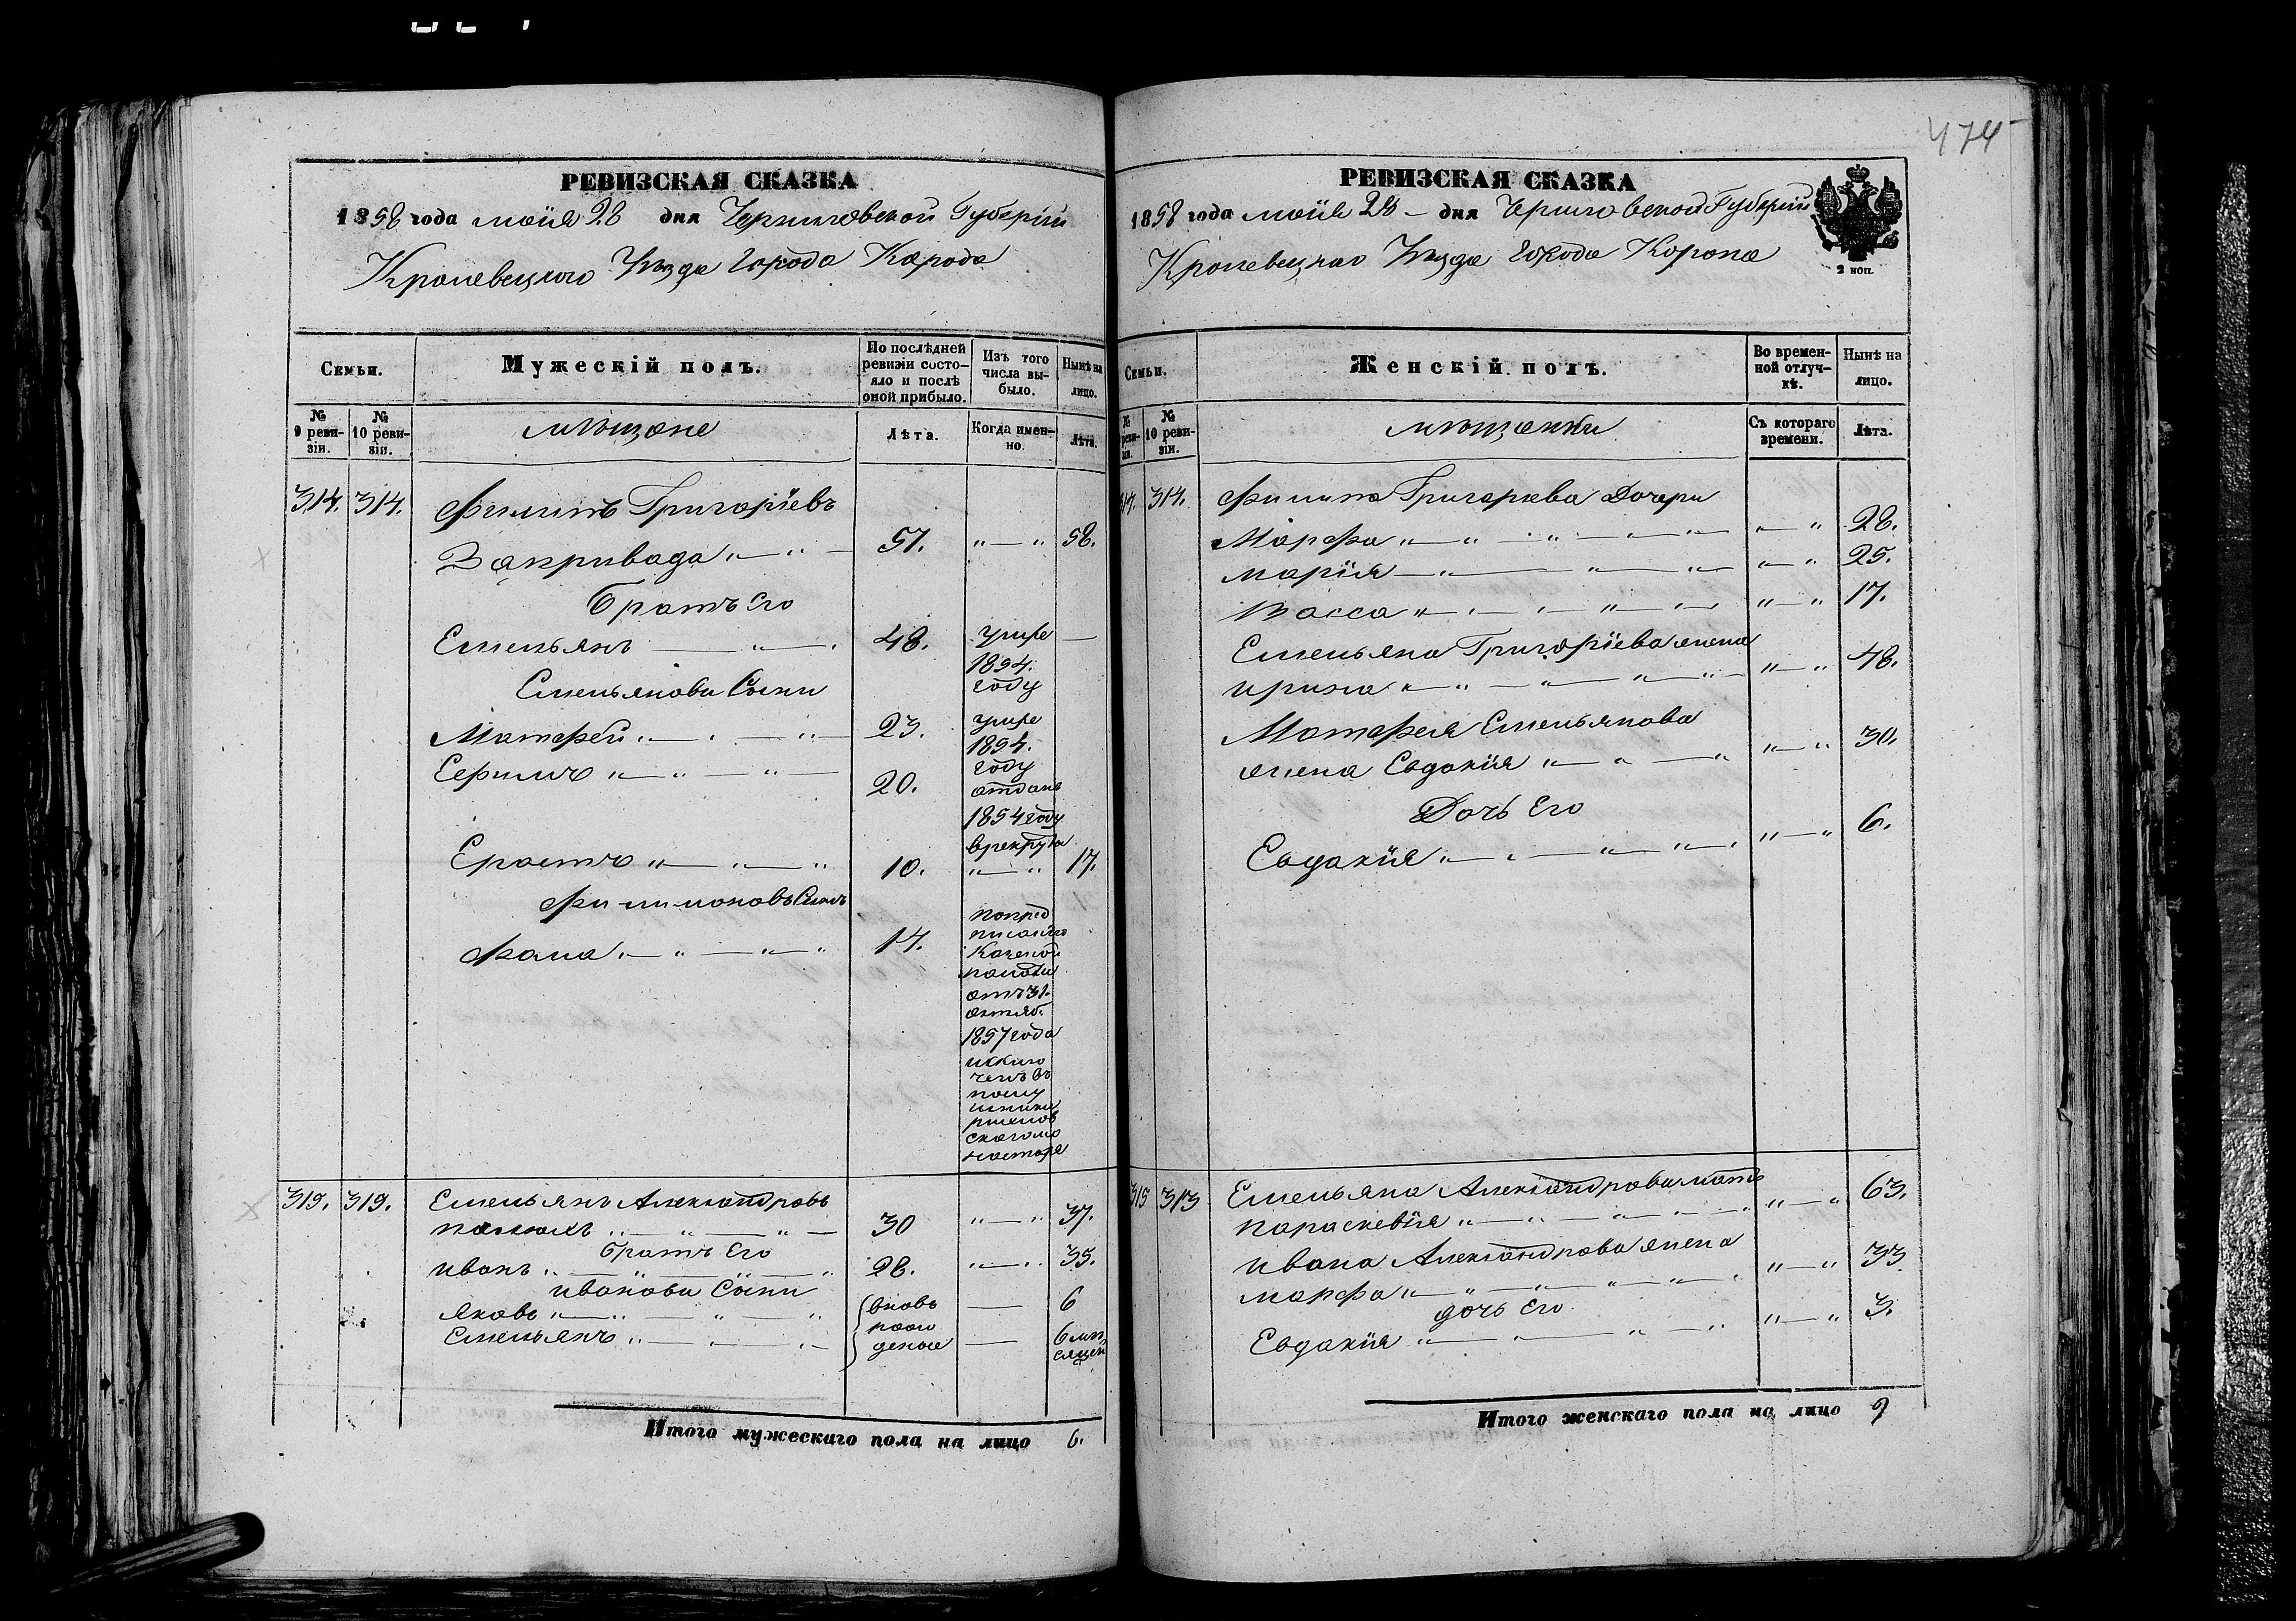 474
РЕВИЗСКАЯ СКАЗКА
1858 года маія 28 дня Черниговской Губерніи
Кролевецкого Уѣзда города Карода
Семьи.
Мужескій полъ.
По послѣдней ревизіи состояло и послѣ оной прибыло.
Изъ того числа выбыло.
Нынѣ на лицо.
№ 9 ревизіи.
№ 10 ревизіи.
мѣщане
Лѣта.
Когда именно.
Лѣта.
314. 314. Филипъ Григоріевъ
Закривада 51. 58.
Братъ его
Емельянъ 48. умре
1854.
году
Емельянови Сыни
Матфей 23. умре
1854.
году
Ефимъ 20. отданъ
1854 году
врекруты
Ерастъ 10. 17.
Филимоновъ Сынъ
Фама 14. попред
писанію
Казеной
палаты
отъ 31.
октяб.
1857 года
исклю
ченъ въ
319. 319. Емельянъ Александровъ
30 37.
Братъ Его
иванъ 28. 35.
иванови Сыни
яковъ вновь 6
Емельянъ рож
деные 6 мѣ
сяцей
Итого мужескаго пола на лицо 6.
РЕВИЗСКАЯ СКАЗКА
1858 года маія 28 дня Черниговской Губерніи
Кролевецкао Уѣзда города Коропа
2 коп.
Семьи.
Женскій полъ.
Во временной отлучкѣ.
Нынѣ на лицо.
№ 10 ревизіи.
мѣщанки
Съ котораго времени.
Лѣта.
314. 314. Филипа Григоріева Дочери
Марфа 28.
марія 25.
Васса 17.
Емельяна Григоріева жена
ирина 48.
Матфея Емельянова
жена Евдокія 30.
Дочь Его
Евдакія 6.
315 313 Емельяна Александрова мать
параскевія 63.
Ивана Александрова жена
марфа 33
дочь Его
Евдакія 3.
Итого женскаго пола на лицо 9